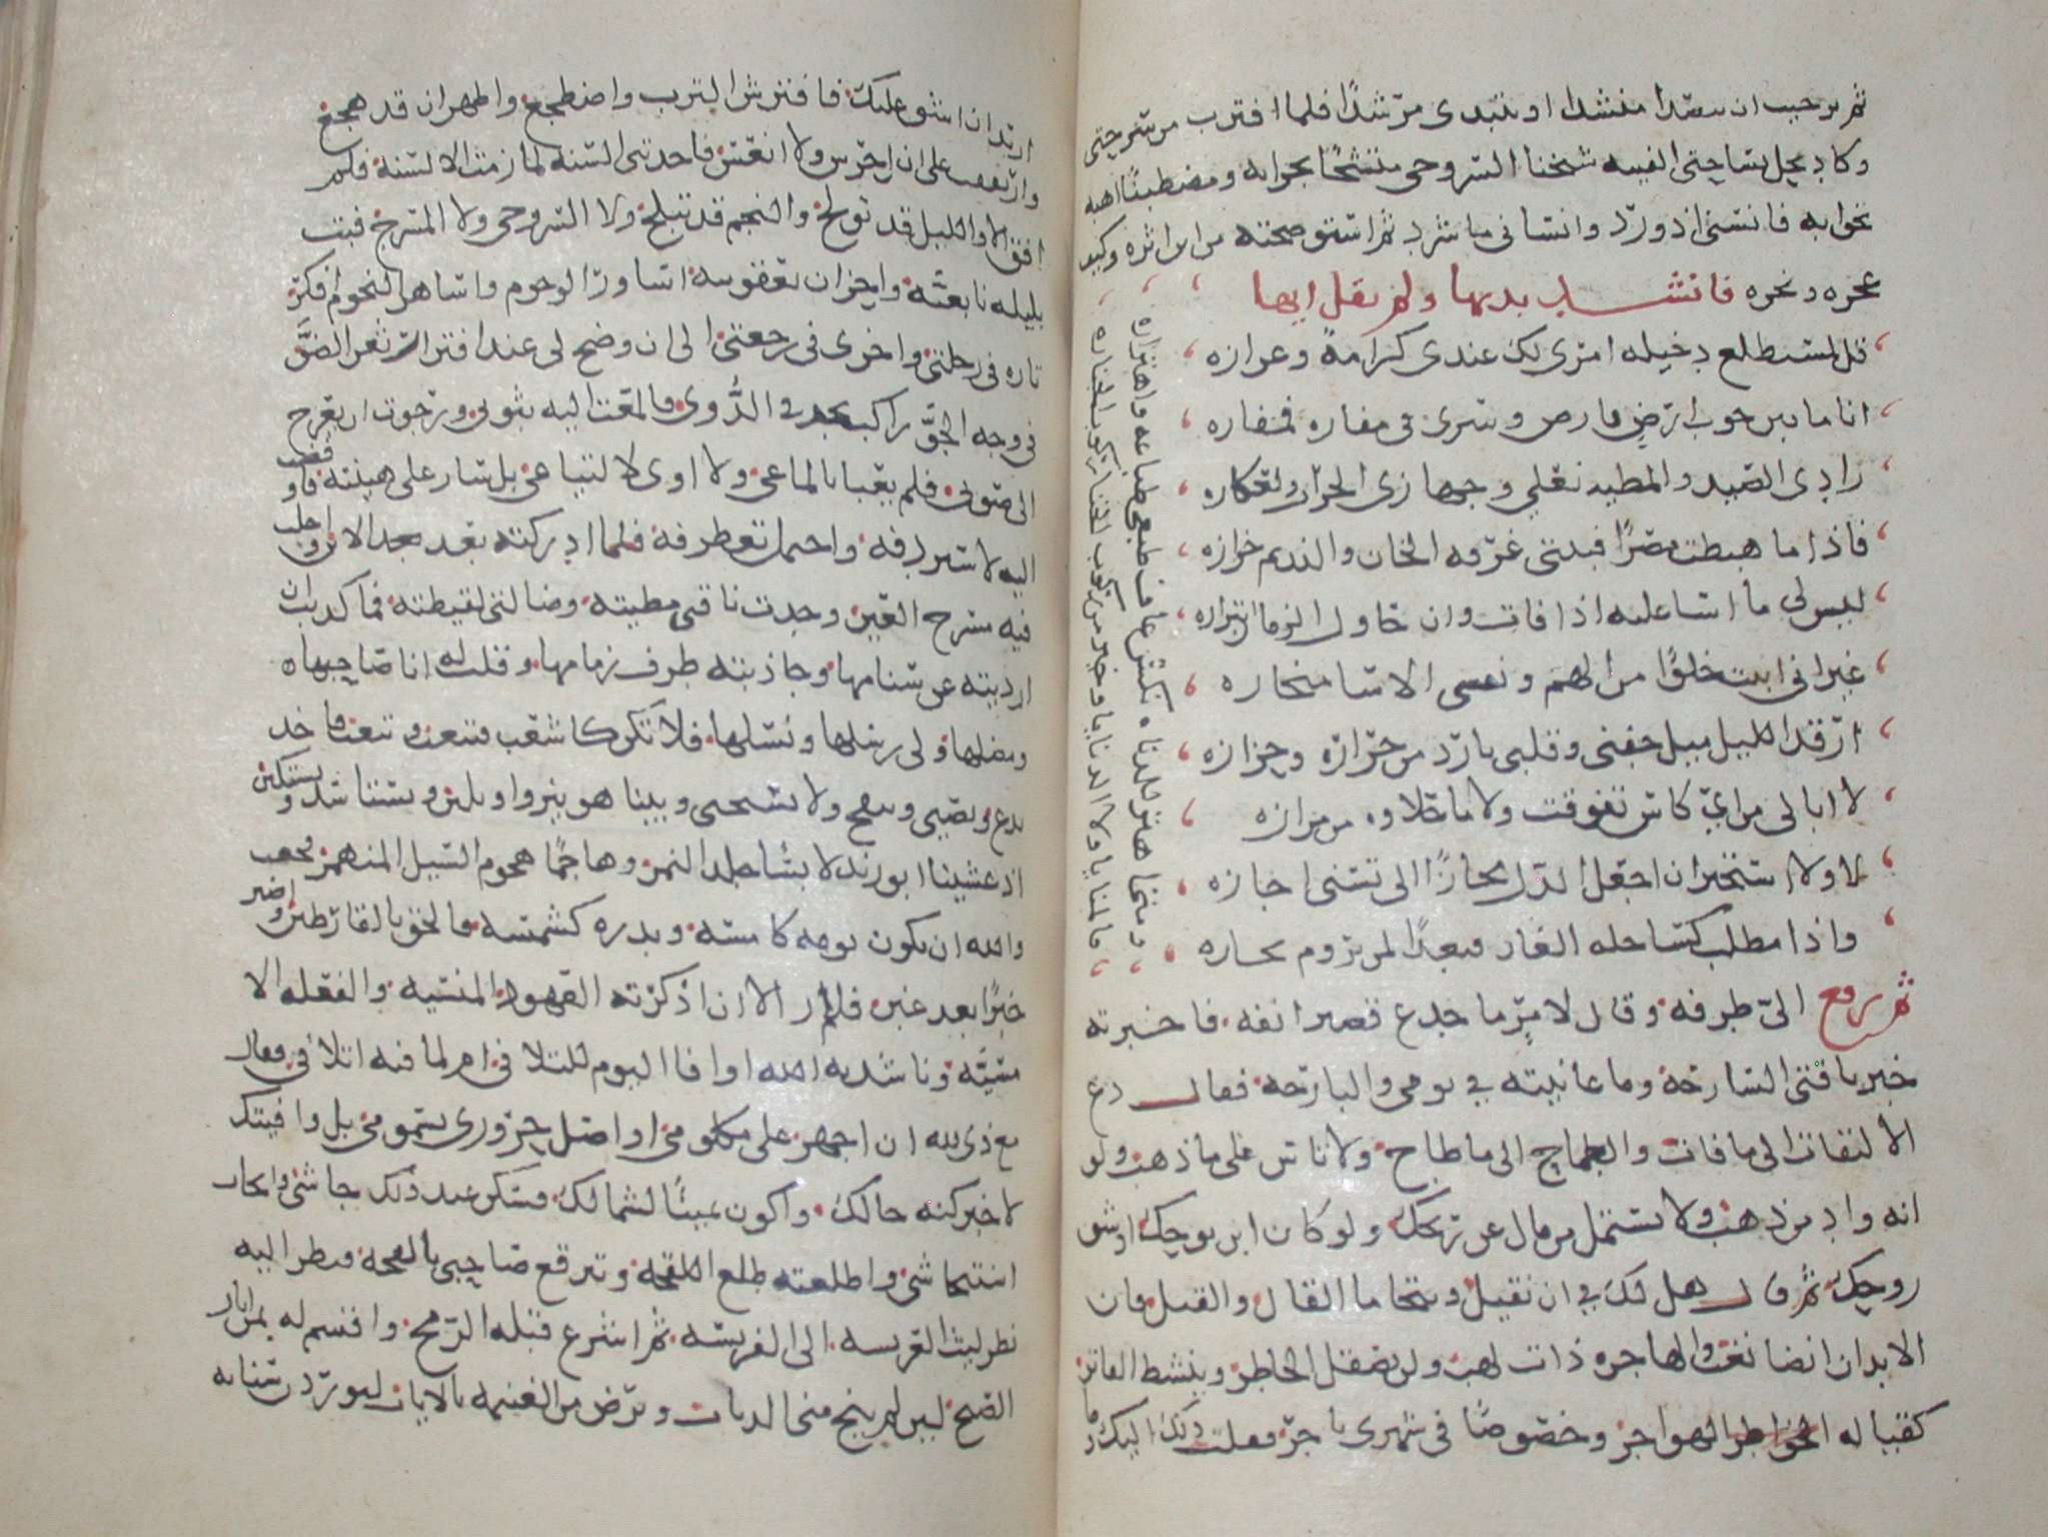 ثم ترجيت ان يتصدا منشدا او يتبدى مرشدا فلما اقترب من سرحتي
وكاد يحل بساحتي الفيته شيخنا السروجي متشحا بجرابه ومضطبنا اهبه
تجوابه فانسني اذ ورد وانساني ما شرد ثم استوضحته من اين اثره وكيف
عجره وبجره فانشد بديها ولم يقل ايها
قل لمستطلع دخيله امري لك عندي كرامة وعزازه
انا ما بين جوب ارض فارض وسرى في مفازه فمفازه
زادي الصيد والمطيه نعلي وجهازي الجراب والعكازه
فاذا ما هبطت مصرا فبيتي غرفه الخان والنديم جزازه
ليس لي ما اسا عليه اذا فات وان حاول الزمان ابتزازه
غير اني ابيت خلوا من الهم ونفسي عن الاسا منحازه
ارقد الليل ميل جفني وقلبي بارد من حرارة وحزازه
لا ابالي من اي كاس تفوقت ولا ما حلاوه من مزازه
لا ولا استجيز ان اجعل الذل مجازا الى تسنى اجازه
واذا مطلب كسا حله العار فبعدا لمن يروم نجازه
ومتى ما اهتز للدناه نكس عاف طبعي طباعه واهتزازه
فالمنايا ولا الدنايا وخير من ركوب الخنا ركوب الجنازه
ثم رفع الي طرفه وقال لامر ما جدع قصير انفه فاخبرته
خبر ناقتي السارحة وما عانيته في يومي والبارحه فقال دع
الالتفات الى ما فات والطماح الى ما طاح ولا تاس على ما ذهب ولو
انه واد من ذهب ولا تستمل من مال عن ريحك ولو كان ابن بوحك او شق
روحك ثم قال هل لك في ان نقيل ونتحاما القال والقيل فان
الابدان انضا تعب والهاجره ذات لهب ولن يصقل الخاطر وينشط الفاتر
كقباله الهواجر وخصوصا في شهري ناجر فقلت ذلك اليك وما
اريد ان اشق عليك فافترش الترب واضطجع واظهر ان قد هجع
وارتفقت على ان احرس ولا انعس فاخذتني السنه لما زمت الالسنة فلم
افق الا والليل قد تولج والنجم قد تبلج ولا السروجي ولا المسرج فبت
بليله نابغية واحزان يعقوبيه اساور الوجوم واساهر النجوم افكر
تاره في رجلتي واخرى في رجعتي الى ان وضح لي عند افترار ثغر الضو
في وجه الجو راكب يخد في الدوي فالمعت اليه بثوبي ورجوت ان يعرج
الى صوبي فلم يعبا بالماعي ولا اوى لالتياعي بل سار على هينته فاوفضت
اليه لاستردفه واحتمل تغطرفه فلما ادركته بعد الاين واجلت
فيه مسرح العين وجدت ناقتي مطيته وضالتي لقيطته فما كذبت ان
اذريته عن سنامها وجاذبته طرف زمامها وقلت له انا صاحبها
ومضلها ولي رسلها ونسلها فلا تكن كاشعب فتتعب وتتعب فاخذ
يلدع ويصيي ويقح ولا يستحيي وبينا هو ينزوا ويلين ويستاسد ويستكين
اذ غشينا ابو زيد لابسا جلد النمر وهاجما هجوم السيل المنهمر فخفت
والله ان يكون يومه كامسه وبدره كشمسه فالحق بالقارظين واصير
خبرا بعد عين فلم ار الا ان اذكرته العهود المنسيه والفعله الا
مسيه وناشدته الله اوافا اليوم للتلافي ام لما فيه اتلافي فقال
معاذ الله ان اجهز على مكلومي او اصل حروري بسمومي بل وافيتك
لاخبر كنه حالك واكون يمينا لشمالك فسكن عند ذلك جاشي وانجاب
استيحاشي واطلعته طلع اللقحه وتبرقع صاحبي بالقحه فنظر اليه
نظر ليث العريسه الى الفريسه ثم اشرع قبله الرمح واقسم له بمن انار
الصبح لين لم ينج منجا الذباب ويرض من الغنيمه بالاياب ليوردن سنانه